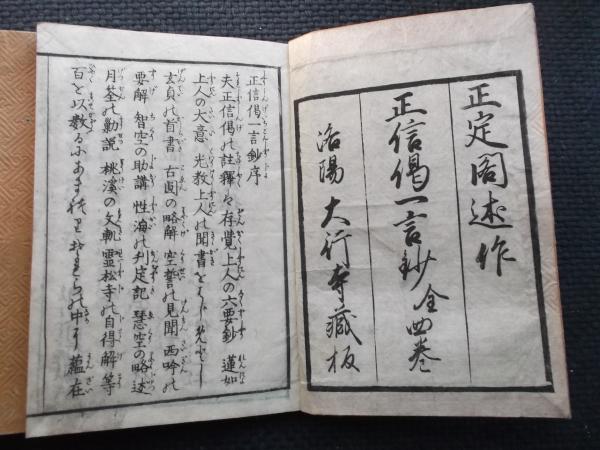 正定閣述作
正信偈一言鈔 全四巻
洛陽 大行寺蔵板
正信偈一言鈔序
夫正信偈の註釋は存覚上人の六要鈔 蓮如
上人の大意 光教上人の聞書をはじめとし
玄貞の首書 古圓の略解 空誓の見聞 西吟の
要解 智空の助講 性海の判定記 慧空の略述
月筌の勧説 桃溪の文軌 霊松寺の自得解等
百を以数るにあまれり それらの中に 蘊在